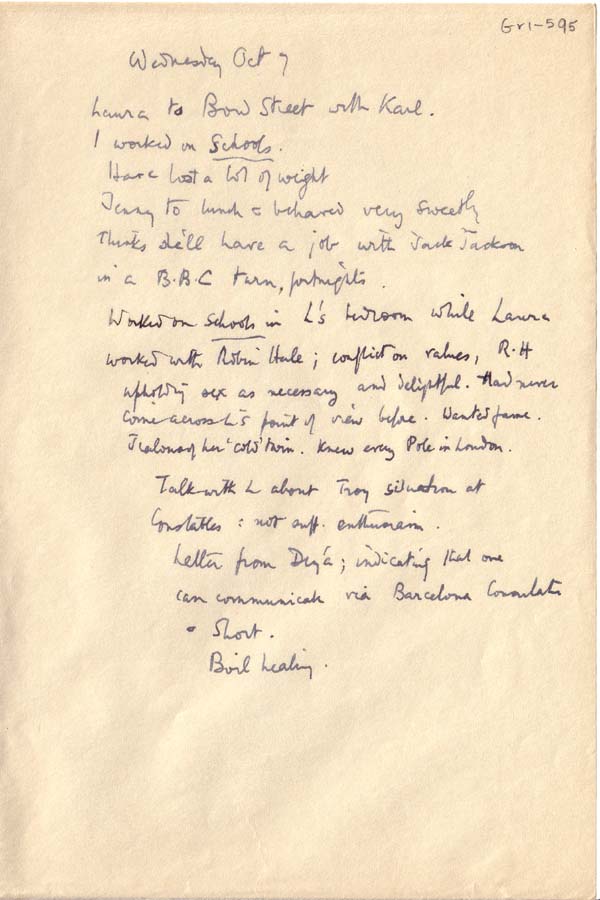 Gr1-595
Wednesday Oct 7
Laura to Bow Street with Karl.
I worked on Schools.
Have lost a lot of weight
Jenny to lunch = behaved very sweetly
Thinks she'll have a job with Jack Jackson
in a B.B.C turn, fortnights.
Worked on Schools in L's bedroom while Laura
worked with Robin Hale; conflict on values, R.H
upholding sex as necessary and delightful. Had never
come across L's point of view before. Wanted fame.
Jealous of her 'cold' twin. Knew every Pole in London.
Talk with L about Troy situation at
Constables: not suff. enthusiasm.
Letter from Deyá; indicating that one
can communicate via Barcelona Consulate
Short.
Boil healing.